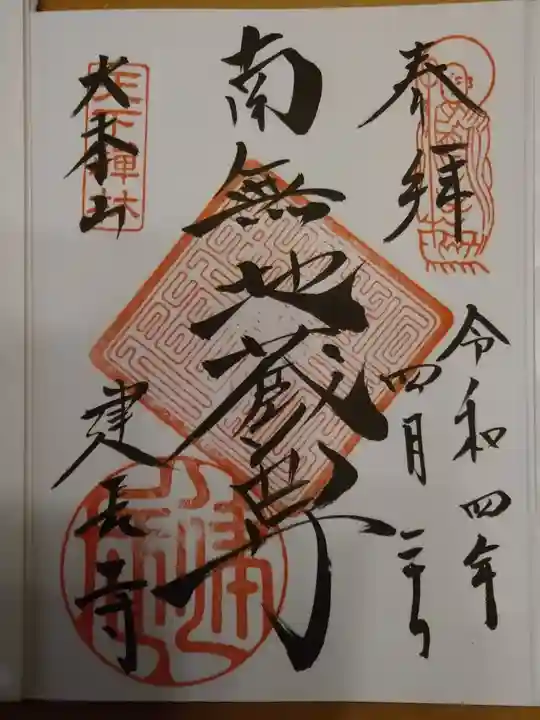 奉拝
令和四年
四月二十日
南無地蔵尊
大本山
天下禅林
建長寺